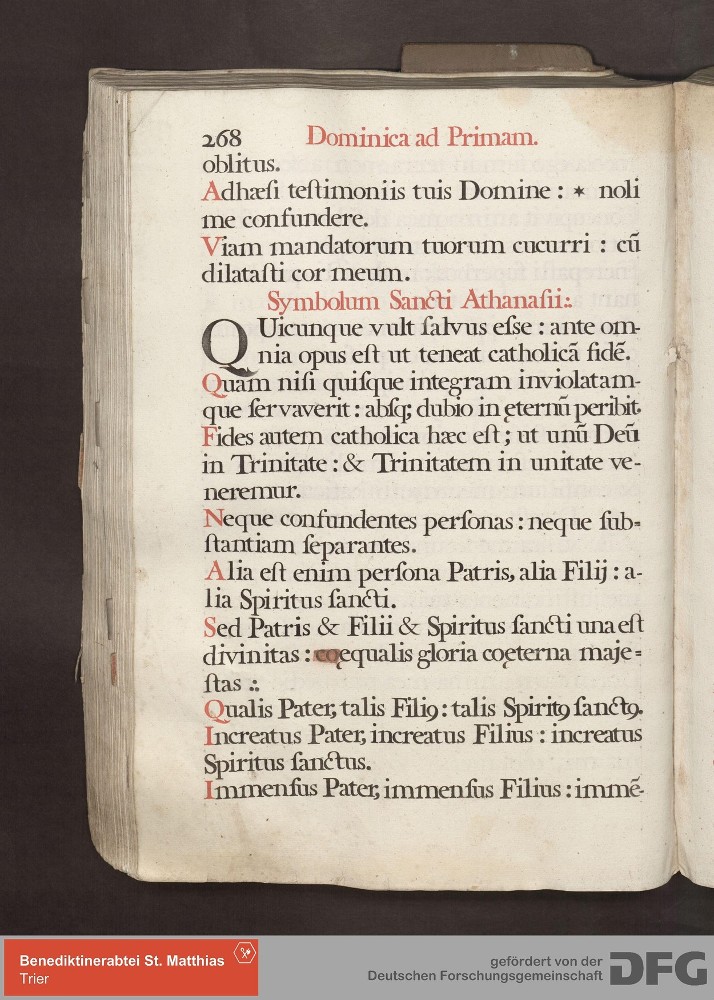 268 Dominica ad Primam.
oblitus.
Adhæſi teſtimoniis tuis Domine : ✶ noli
me confundere.
Viam mandatorum tuorum cucurri : cũ
dilataſti cor meum.
Symbolum Sancti Athanaſii:.
QUicunque vult ſalvus eſse : ante om-
nia opus eſt ut teneat catholicã fidẽ.
Quam niſi quiſque integram inviolatam-
que ſervaverit : abſq; dubio in ęternũ peribit.
Fides autem catholica hæc eſt ; ut unũ Deũ
in Trinitate : & Trinitatem in unitate ve-
neremur.
Neque confundentes perſonas : neque ſub=
ſtantiam ſeparantes.
Alia eſt enim perſona Patris, alia Filij : a-
lia Spiritus ſancti.
Sed Patris & Filii & Spiritus ſancti una eſt
divinitas : coęqualis gloria coęterna maje=
ſtas :.
Qualis Pater, talis Filiꝯ : talis Spiritꝯ ſanctꝯ.
Increatus Pater, increatus Filius : increatus
Spiritus ſanctus.
Immenſus Pater, immenſus Filius : immẽ-
Benediktinerabtei St. Matthias
Trier
gefördert von der
Deutschen Forschungsgemeinschaft DFG